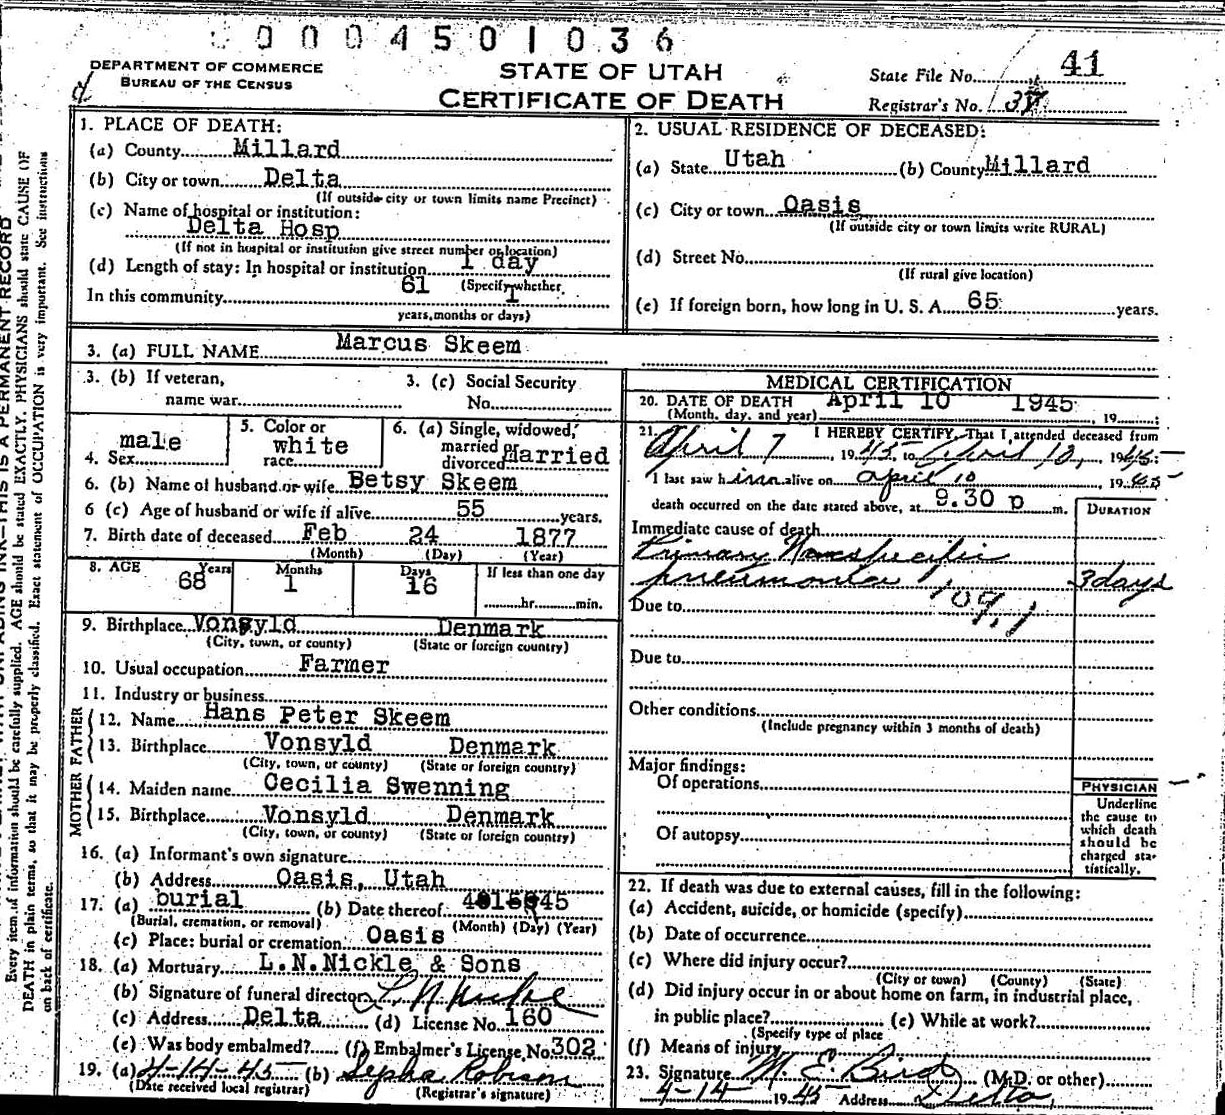 0004501036
DEPARTMENT OF COMMERCE
BUREAU OF THE CENSUS
STATE OF UTAH
CERTIFICATE OF DEATH
State File No. 41
Registrar's No.
1. PLACE OF DEATH:
(a) County Millard
(b) City or town Delta
(If outside city or town limits name Precinct)
(c) Name of hospital or institution:
Delta Hosp
(If not in hospital or institution give street number or location)
(d) Length of stay: In hospital or institution 1 day
(Specify whether
In this community 61 1
years, months or days)
2. USUAL RESIDENCE OF DECEASED:
(a) State Utah (b) County Millard
(c) City or town Oasis
(If outside city or town limits write RURAL)
(d) Street No.
(If rural give location)
(e) If foreign born, how long in U. S. A. 65 years.
3. (a) FULL NAME Marcus Skeem
3. (b) If veteran,
name war
3. (c) Social Security
No.
4. Sex male
5. Color or
race white
6. (a) Single, widowed,
married or
divorced Married
6. (b) Name of husband or wife Betsy Skeem
6 (c) Age of husband or wife if alive 55 years.
7. Birth date of deceased Feb 24 1877
(Month) (Day) (Year)
8. AGE Years Months Days If less than one day
68 1 16
hr. min.
9. Birthplace Vonsyld Denmark
(City, town, or county) (State or foreign country)
10. Usual occupation Farmer
11. Industry or business
FATHER
12. Name Hans Peter Skeem
13. Birthplace Vonsyld Denmark
(City, town, or county) (State or foreign country)
MOTHER
14. Maiden name Cecilia Swenning
15. Birthplace Vonsyld Denmark
(City, town, or county) (State or foreign country)
16. (a) Informant's own signature
(b) Address Oasis, Utah
17. (a) burial (b) Date thereof
(Burial, cremation, or removal) (Month) (Day) (Year)
(c) Place: burial or cremation Oasis
18. (a) Mortuary L.N.Nickle & Sons
(b) Signature of funeral director L. N. Nickle
(c) Address Delta (d) License No. 160
(e) Was body embalmed? (f) Embalmer's License No. 302
19. (a) 4-14-45 (b) Sepha Robison
(Date received local registrar) (Registrar's signature)
MEDICAL CERTIFICATION
20. DATE OF DEATH April 10 1945
(Month, day, and year) 19
21. I HEREBY CERTIFY, That I attended deceased from
April 7, 1945 to April 10, 1945
I last saw him alive on April 10, 1945
death occurred on the date stated above, at 9.30 p m.
DURATION
Immediate cause of death
Primary Nonspecific
pneumonia 3 days
109.1
Due to
Due to
Other conditions
(Include pregnancy within 3 months of death)
Major findings:
Of operations
Of autopsy
PHYSICIAN
Underline
the cause to
which death
should be
charged sta-
tistically.
22. If death was due to external causes, fill in the following:
(a) Accident, suicide, or homicide (specify)
(b) Date of occurrence
(c) Where did injury occur?
(City or town) (County) (State)
(d) Did injury occur in or about home on farm, in industrial place,
in public place? (e) While at work?
(Specify type of place
(f) Means of injury
23. Signature M. E. Bird (M.D. or other)
4-14 1945 Address Delta
THIS IS A PERMANENT RECORD
Every item of information should be carefully supplied. AGE should be stated EXACTLY. PHYSICIANS should state CAUSE OF
DEATH in plain terms, so that it may be properly classified. Exact statement of OCCUPATION is very important. See instructions
on back of certificate.